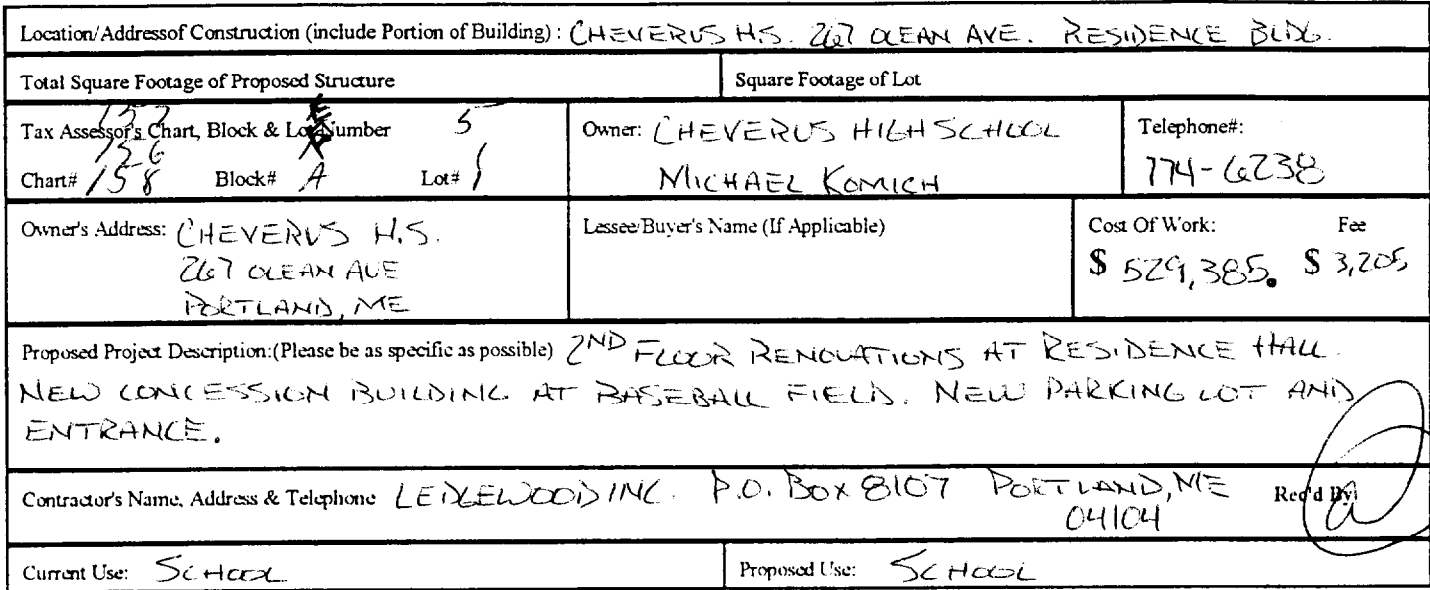 Location/Addressof Construction (include Portion of Building): CHEVERUS H.S. 267 OCEAN AVE. RESIDENCE BLDG.
Total Square Footage of Proposed Structure Square Footage of Lot
Tax Assessor's Chart, Block & Lot Number 5 Owner: CHEVERUS HIGH SCHOOL Telephone#:
Chart# 158 Block# A Lot# 1 MICHAEL KOMICH 774-6238
Owner's Address: CHEVERUS H.S. Lessee/Buyer's Name (If Applicable) Cost Of Work: Fee
267 OCEAN AVE $ 529,385. $ 3,205
PORTLAND, ME
Proposed Project Description:(Please be as specific as possible) 2ND FLOOR RENOVATIONS AT RESIDENCE HALL.
NEW CONCESSION BUILDING AT BASEBALL FIELD. NEW PARKING LOT AND
ENTRANCE.
Contractor's Name, Address & Telephone LEDGEWOOD INC. P.O. BOX 8107 PORTLAND, ME Rec'd By:
04104
Current Use: SCHOOL Proposed Use: SCHOOL